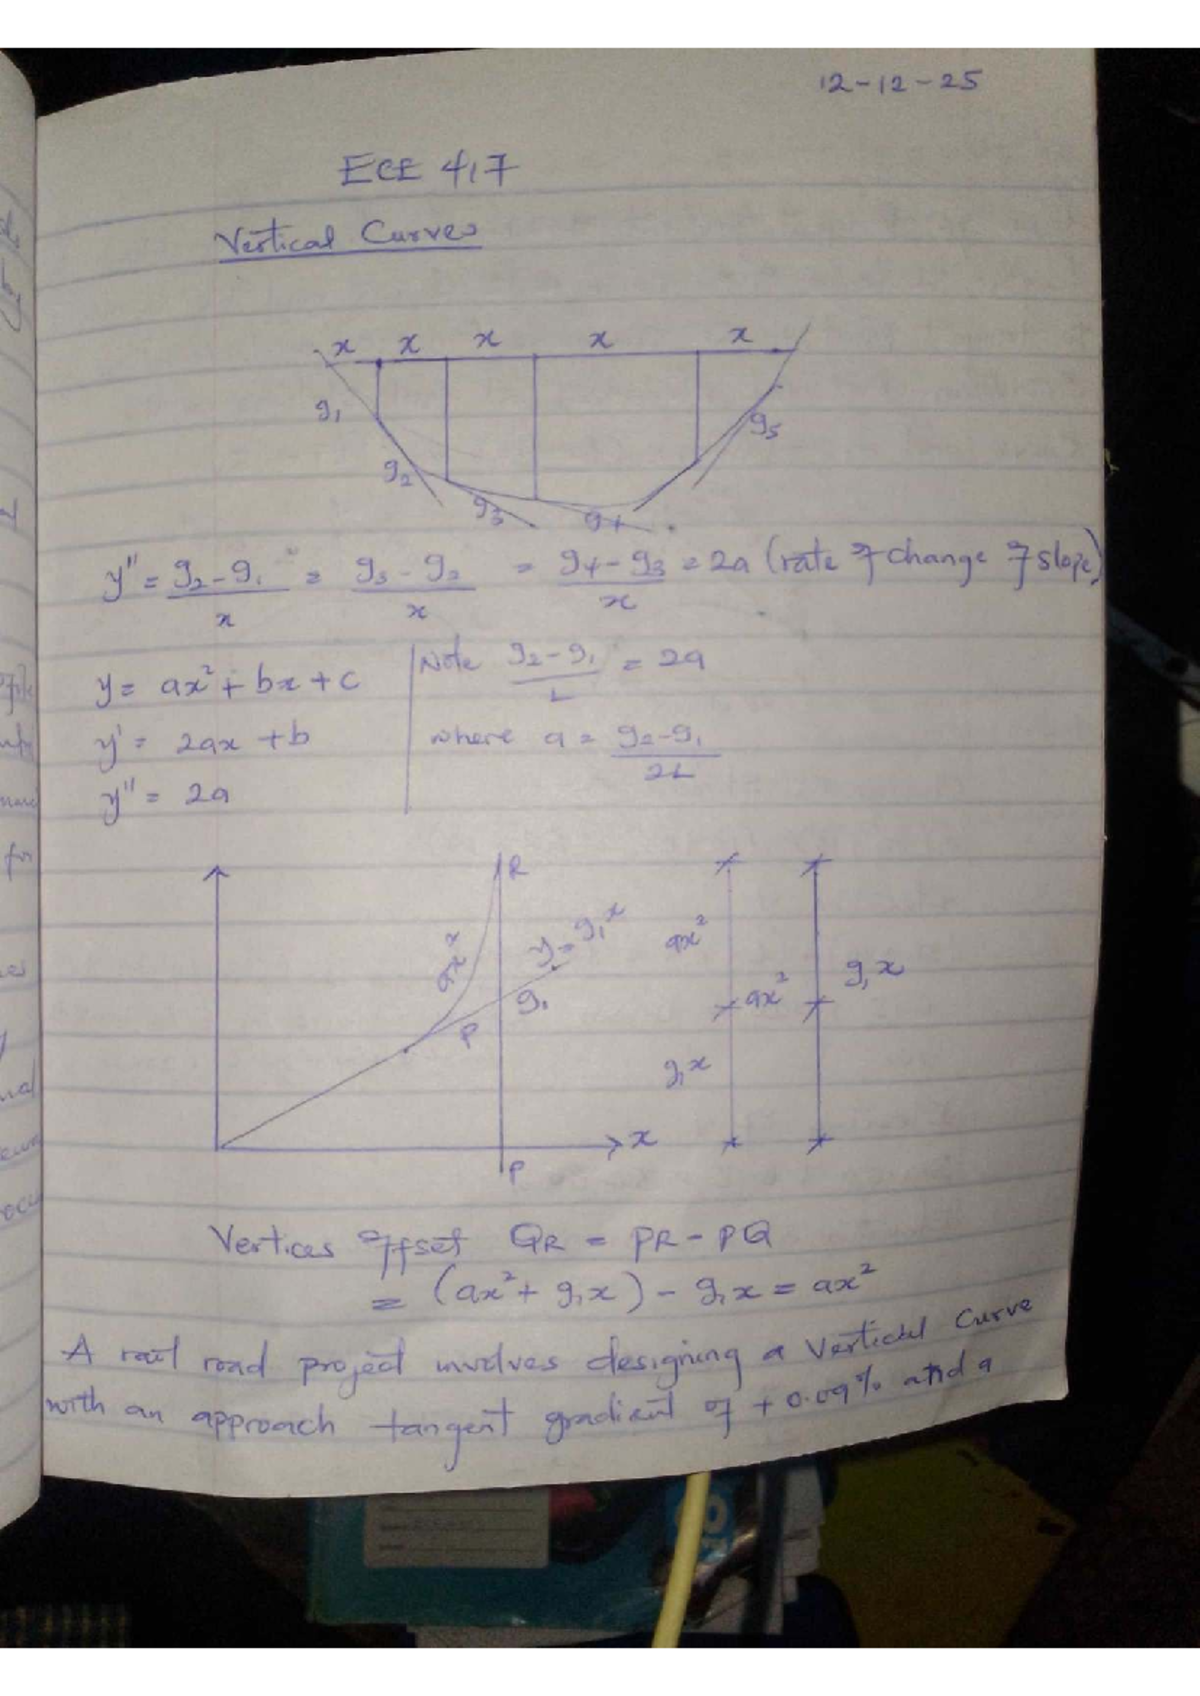 12-12-25
ECE 417
Vertical Curves
x x x x x
g₁
g₂
g₃
g₄
g₅
y'' = g₂-g₁/x = g₃-g₂/x = g₄-g₃/x = 2a (rate of change of slope)
y = ax² + bx + c
y' = 2ax + b
y'' = 2a
Note g₂-g₁/L = 2a
where a = g₂-g₁/2L
R
ax²
y = g₁x
g₁
P
x
P
ax²
g₁x
ax²
g₁x
Vertices offset QR = PR - PQ
= (ax² + g₁x) - g₁x = ax²
A rail road project involves designing a Vertical Curve
with an approach tangent gradient of +0.09% and a